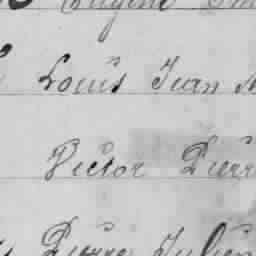 Eugène
Louis Jean
Victor Pierre
Pierre Julien